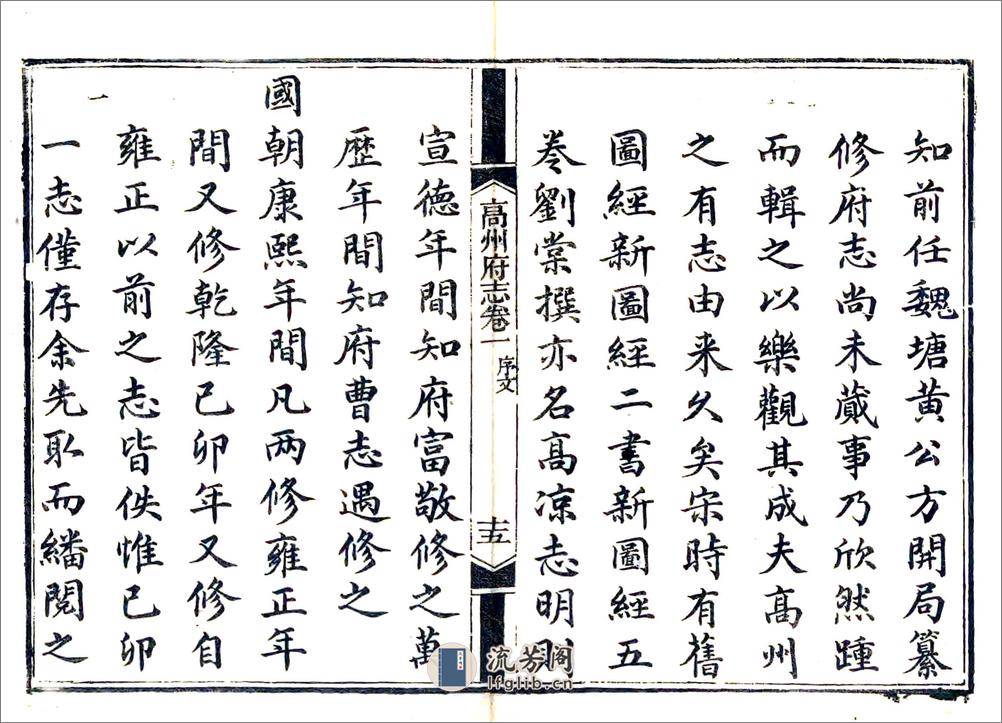 知前任魏塘黄公方開局纂
修府志尚未蕆事乃欣然踵
而輯之以樂觀其成夫高州
之有志由来久矣宋時有舊
圖經新圖經二書新圖經五
卷劉棠撰亦名高凉志明則
高州府志卷一
序文
十五
宣德年間知府富敬修之萬
歷年間知府曹志遇修之
國朝康熙年間凡两修雍正年
間又修乾隆己卯年又修自
雍正以前之志皆佚惟己卯
一志僅存余先取而繙閱之
流芳阁
lfglib.cn